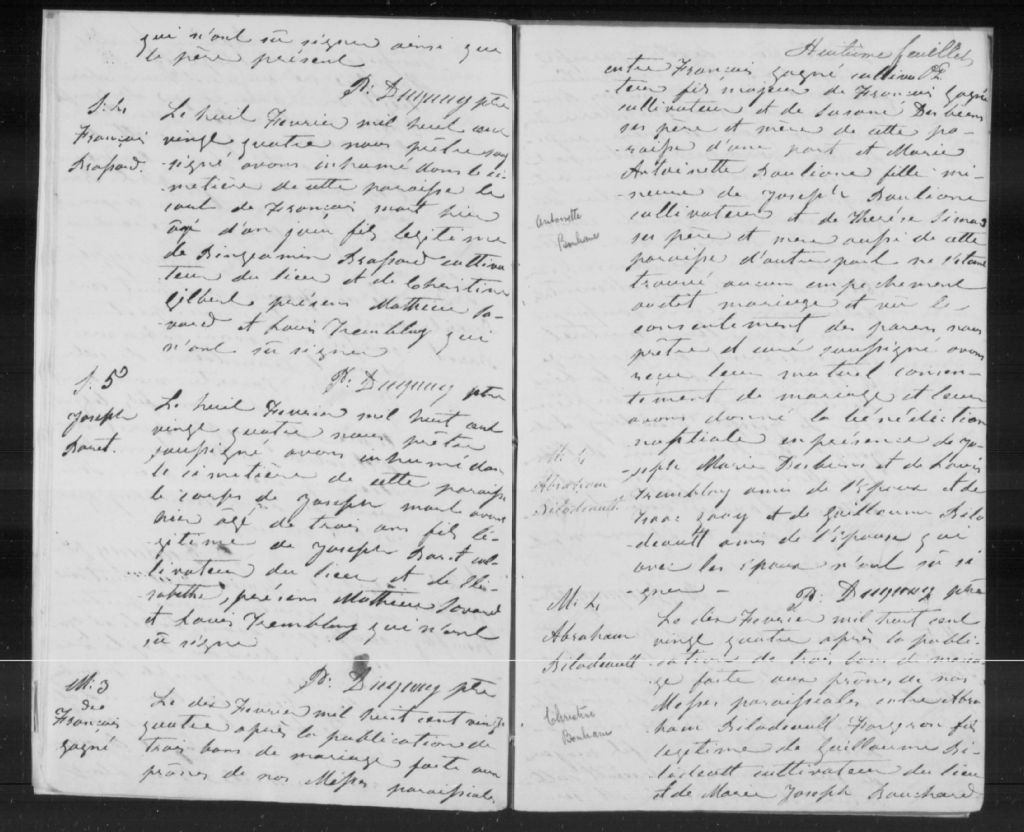 qui n'ont sû signer ainsi que
le père présent
P: Duguay ptre
S: 4
François
Brassard.
Le huit Fevrier mil huit cent
vingt quatre nous prêtre sous
signé avons inhumé dans le ci-
metière de cette paroisse le
corps de François mort hier
âgé d'un jour fils legitime
de Bingamin Brassard cultiva
teur du lieu et de Christine
Gilbert, présens Mathieu Sa-
vard et Louis Tremblay qui
n'ont sû signer
P: Duguay ptre
S: 5
Joseph
Le huit Fevrier mil huit cent
vingt quatre nous prêtre
soussigné avons inhumé dans
le cimetière de cette paroisse
le corps de Joseph mort avant
hier âgé de trois ans fils lé-
gitime de Joseph cul-
tivateur du lieu et de Eli-
sabethe, présens Mathieu Savard
et Louis Tremblay qui n'ont
sû signé
P: Duguay ptre
M: 3
die
François
gagné
Le dix Fevrier mil huit cent vingt
quatre après la publication de
trois bans de mariage faite aux
prônes de nos Messes paroissiales
Huitième feuillet
entre François gagné cultiva
teur fils majeur de François gagné
cultivateur et de Susane Desbiens
ses père et mère de cette pa-
roisse d'une part et Marie
Antoinette Bouliane fille mi-
neure de Joseph Bouliane
cultivateur et de Therèse Simard
ses père et mere aussi de cette
paroisse d'autre part ne s'étant
trouvé aucun empechement
audit mariage et vû le
consentement des parens nous
prêtre et curé soussigné avons
reçu leur mutuel consen-
tement de mariage et leur
avons donné la bénédiction
nuptiale en présence de Jo-
seph Marie Desbiens et de Louis
Tremblay amis de l'Epoux et de
Isaac et de Guillaume Bilo
deault amis de l'épouse qui
avec les époux n'ont sû si
gner -
P: Duguay ptre
Antoinette
Bonhane
M: 4
Abraham
Bilodeault
M: 4
Abraham
Bilodeault
Christine
Bonhane
Le dix Fevrier mil huit cent
vingt quatre après la publi-
cation de trois bans de maria
ge faite aux prônes de nos
Messes paroissiales entre Abra
ham Bilodeault Forgeron fils
legitime de Guillaume Bi-
lodeault cultivateur du lieu
et de Marie Joseph Bouchard